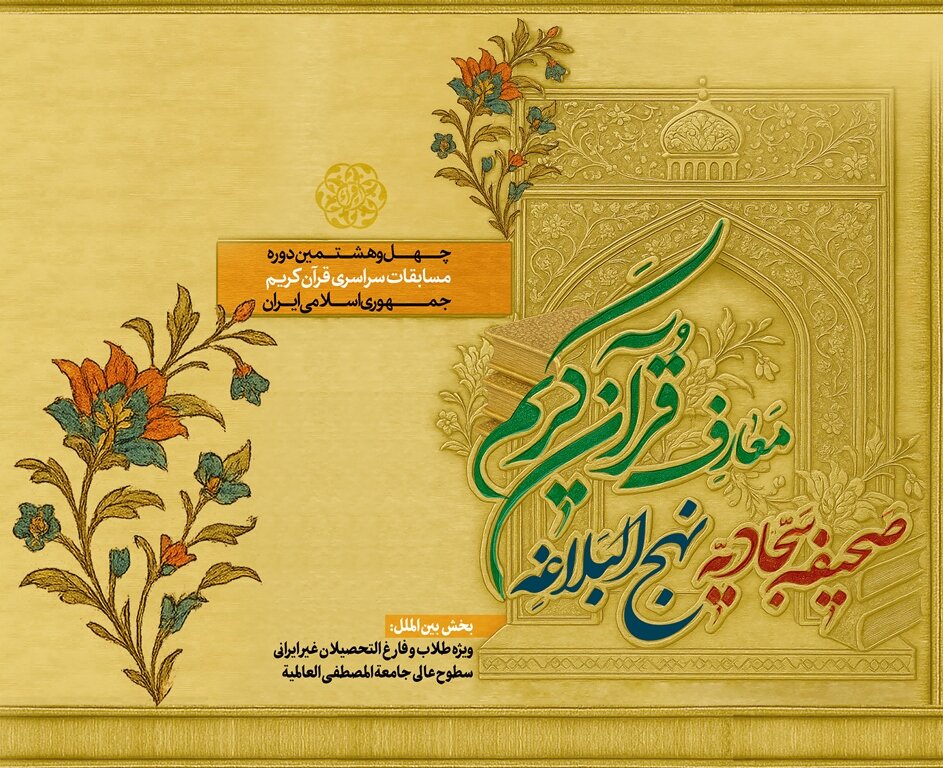 چهل‌وهشتمین دوره
مسابقات سراسری قرآن کریم
جمهوری اسلامی ایران
معارف قُرآن کریم
صحیفه سجّادیّه
نهج البَلاغِه
بخش بین الملل:
ویژه طلاب و فارغ التحصیلان غیرایرانی
سطوح عالی جامعة المصطفی العالمیة